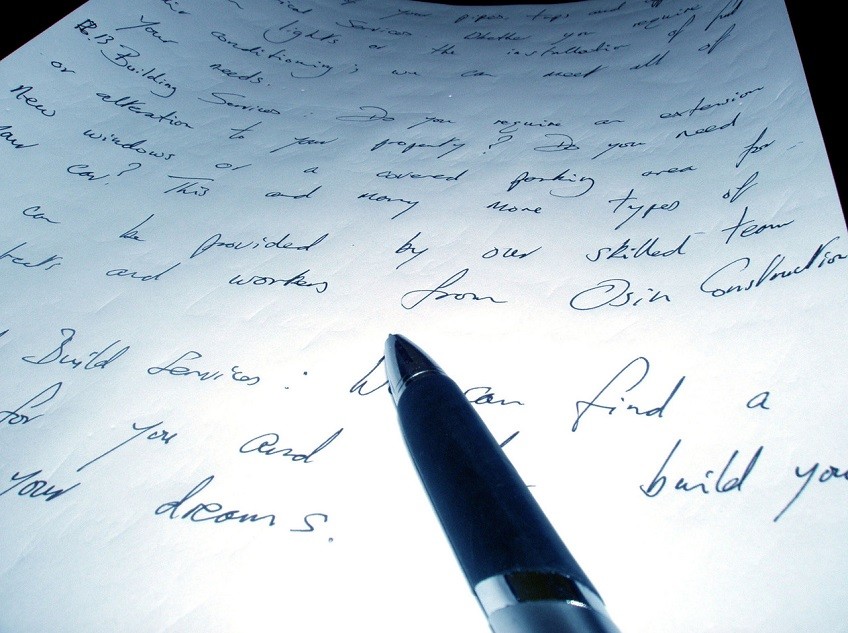 of your pipes taps and
Services Whether you require
lights or the installation of
Your conditioning; we can meet all of
needs.
Building Services : Do you require an extension
or alteration to your property? Do you need
New windows or a covered parking area for
car? This and many more types of
can be provided by our skilled team
and workers from Osin Construction
Build Services : We can find a
for you and build you
your dreams.